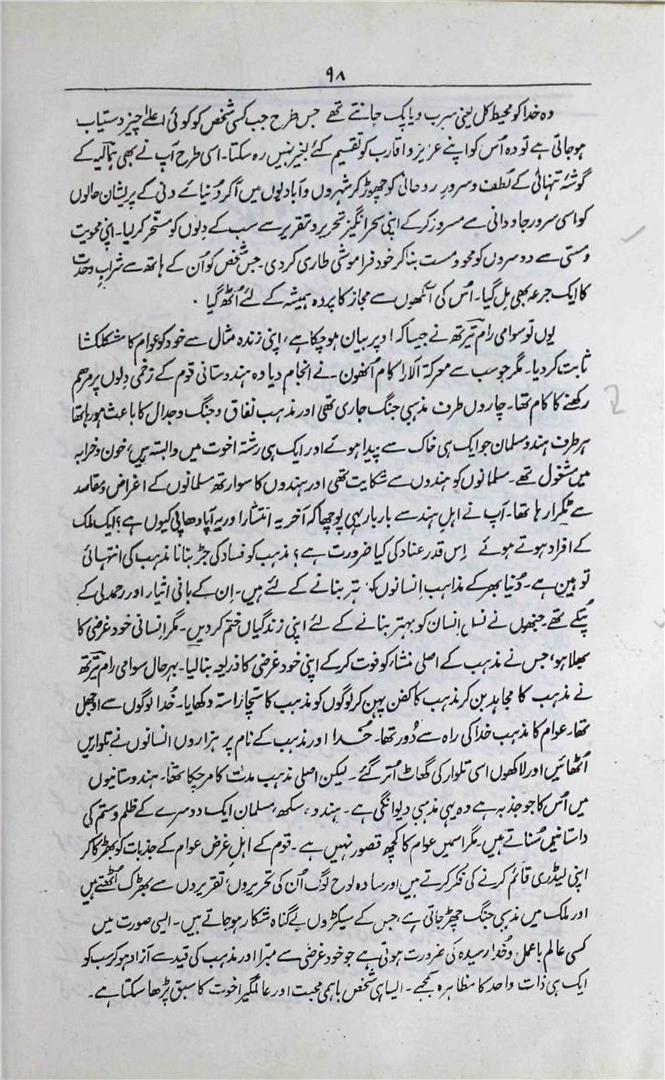 ۹۸
وہ خدا کو محیط کل یعنی سرب ویاپک جانتے تھے جس طرح جب کسی شخص کو کوئی اعلےٰ چیز دستیاب
ہو جاتی ہے تو وہ اُس کو اپنے عزیز و اقارب کو تقسیم کئے بغیر نہیں رہ سکتا۔ اسی طرح آپ نے بھی ہمالیہ کے
گوشۂ تنہائی کے لطف و سرورِ روحانی کو چھوڑ کر شہروں و آبادیوں میں آکر دُنیائے دنی کے پریشان حالوں
کو اسی سرور جاودانی سے مسرور کرکے اپنی سحر انگیز تحریر و تقریر سے سب کے دِلوں کو مسخّر کر لیا۔ اپنی محویت
و مستی سے دوسروں کو محو و مست بنا کر خود فراموشی طاری کردی۔ جس شخص کو اُن کے ہاتھ سے شرابِ وحدت
کا ایک جرعہ بھی مل گیا۔ اُس کی آنکھوں سے مجاز کا پردہ ہمیشہ کے لئے اُٹھ گیا ۔
یوں تو سوامی رام تیرتھ نے جیسا کہ اوپر بیان ہو چکا ہے، اپنی زندہ مثال سے خود کو عوام کا مشکلکشا
ثابت کردیا۔ مگر جو سب سے معرکۃ الآرا کام اُنھوں نے انجام دیا وہ ہندوستانی قوم کے زخمی دِلوں پر مرہم
رکھنے کا کام تھا۔ چاروں طرف مذہبی جنگ جاری تھی اور مذہب نفاق و جنگ وجدال کا باعث ہو رہا تھا
ہر طرف ہندو مسلمان جو ایک ہی خاک سے پیدا ہوئے اور ایک ہی رشتہ اخوت میں وابستہ ہیں، خون و خرابہ
میں مشغول تھے۔ مسلمانوں کو ہندوں سے شکایت تھی اور ہندوں کا سوارتھ مسلمانوں کے اغراض و مقاصد
سے ٹکرا رہا تھا۔ آپ نے اہلِ ہند سے بار بار یہی پوچھا کہ آخر یہ انتشار اور یہ آپا دھاپی کیوں ہے؟ ایک ملک
کے افراد ہوتے ہوئے اِس قدر عناد کی کیا ضرورت ہے؟ مذہب کو فساد کی جڑ بنانا مذہب کی انتہائی
توہین ہے۔ دُنیا بھر کے مذاہب اِنسانوں کو بہتر بنانے کے لئے ہیں۔ اِن کے بانی ایثار اور رحمدلی کے
پُتلے تھے جنھوں نے نسلِ اِنسان کو بہتر بنانے کے لئے اپنی زندگیاں ختم کردیں۔ مگر اِنسانی خود غرضی کا
بھلا ہو، جس نے مذہب کے اصلی منشا کو فوت کرکے اپنی خود غرضی کا ذریعہ بنا لیا۔ بہرحال سوامی رام تیرتھ
نے مذہب کا مجاہد بن کر مذہب کا کفن پہن کر لوگوں کو مذہب کا سچّا راستہ دکھایا۔ خُدا لوگوں سے اوجھل
تھا۔ عوام کا مذہب خدا کی راہ سے دُور تھا۔ خُدا اور مذہب کے نام پر ہزاروں انسانوں نے تلواریں
اُٹھائیں اور لاکھوں اسی تلوار کی گھاٹ اُتر گئے۔ لیکن اصلی مذہب مدت کا مر چکا تھا۔ ہندوستانیوں
میں اُس کا جو جذبہ ہے وہ یہی مذہبی دیوانگی ہے۔ ہندو، سکھ، مسلمان ایک دوسرے کے ظلم و ستم کی
داستانیں سُناتے ہیں۔ مگر اسمیں عوام کا کچھ قصور نہیں ہے۔ قوم کے اہلِ غرض عوام کے جذبات کو بھڑکا کر
اپنی لیڈری قائم کرنے کی فکر کرتے ہیں اور سادہ لوح لوگ اُن کی تحریروں، تقریروں سے بھڑک اُٹھتے ہیں
اور ملک میں مذہبی جنگ چھڑ جاتی ہے، جس کے سیکڑوں بے گناہ شکار ہو جاتے ہیں۔ ایسی صورت میں
کسی عالم باعمل و خدا رسیدہ کی ضرورت ہوتی ہے جو خود غرضی سے مبرّا اور مذہب کی قید سے آزاد ہو کر سب کو
ایک ہی ذات واحد کا مظاہرہ سمجھے۔ ایسا ہی شخص باہمی محبت اور عالمگیر اخوت کا سبق پڑھا سکتا ہے۔